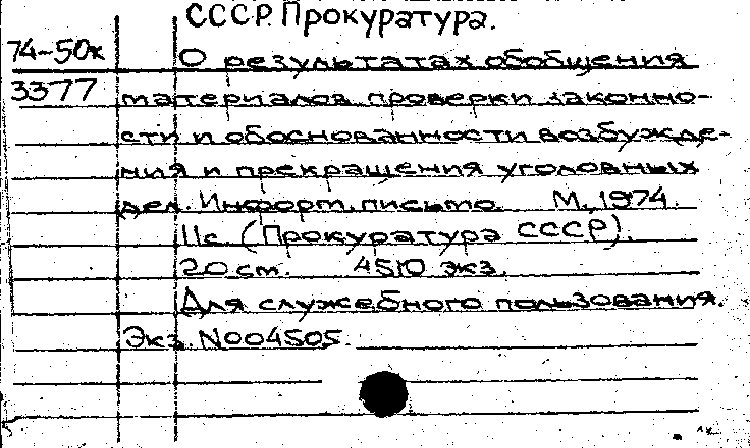 СССР. Прокуратура.
74-50к О результатах обобщения
3377 материалов проверки законно-
сти и обоснованности возбужде-
ния и прекращения уголовных
дел. Информ. письмо. М., 1974.
11с. (Прокуратура СССР).
20 см. 4510 экз.
Для служебного пользования.
Экз. N004505.